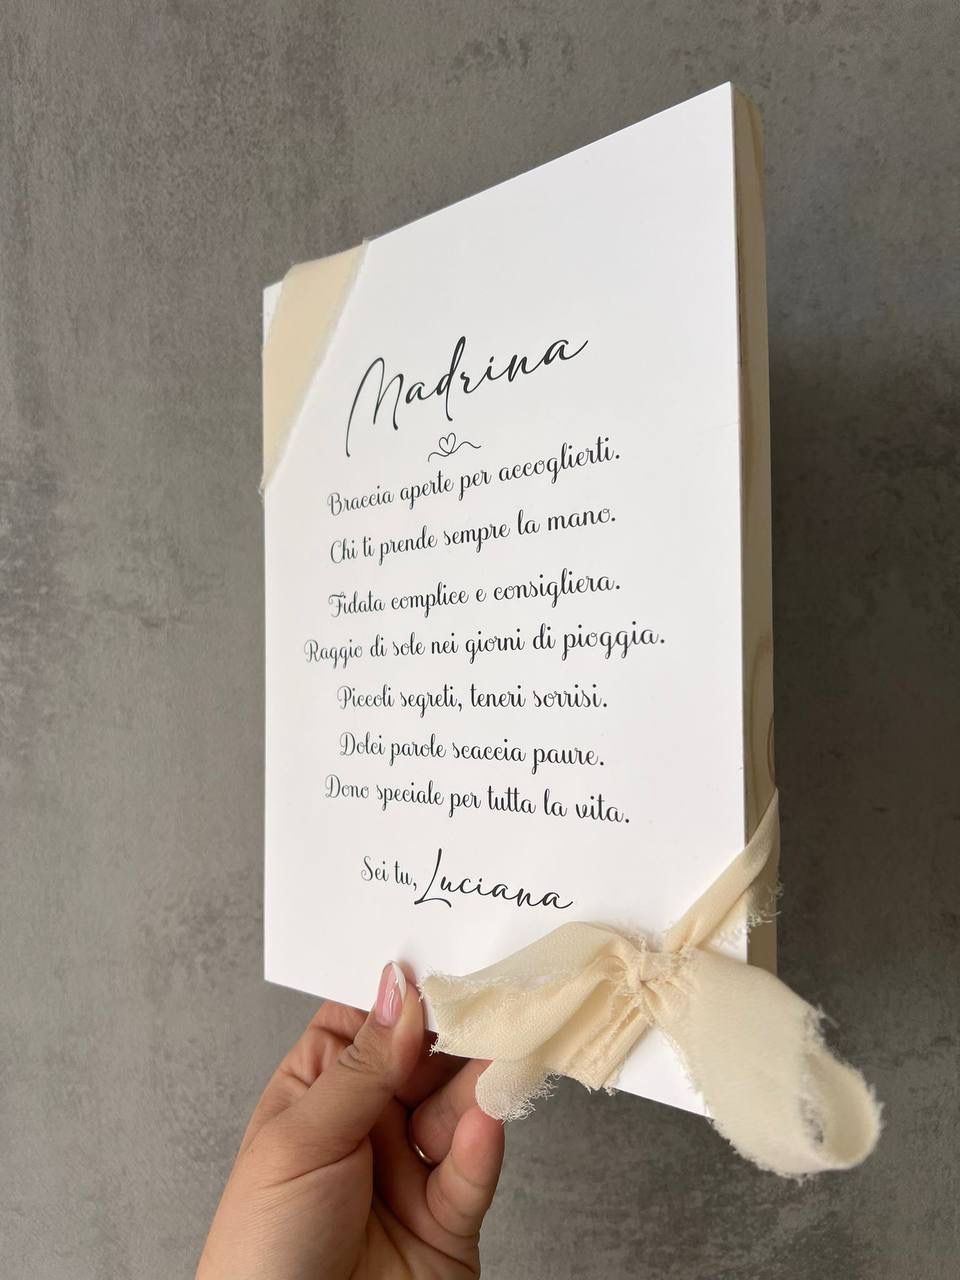 Madrina
Braccia aperte per accoglierti.
Chi ti prende sempre la mano.
Fidata complice e consigliera.
Raggio di sole nei giorni di pioggia.
Piccoli segreti, teneri sorrisi.
Dolci parole scaccia paure.
Dono speciale per tutta la vita.
Sei tu, Luciana